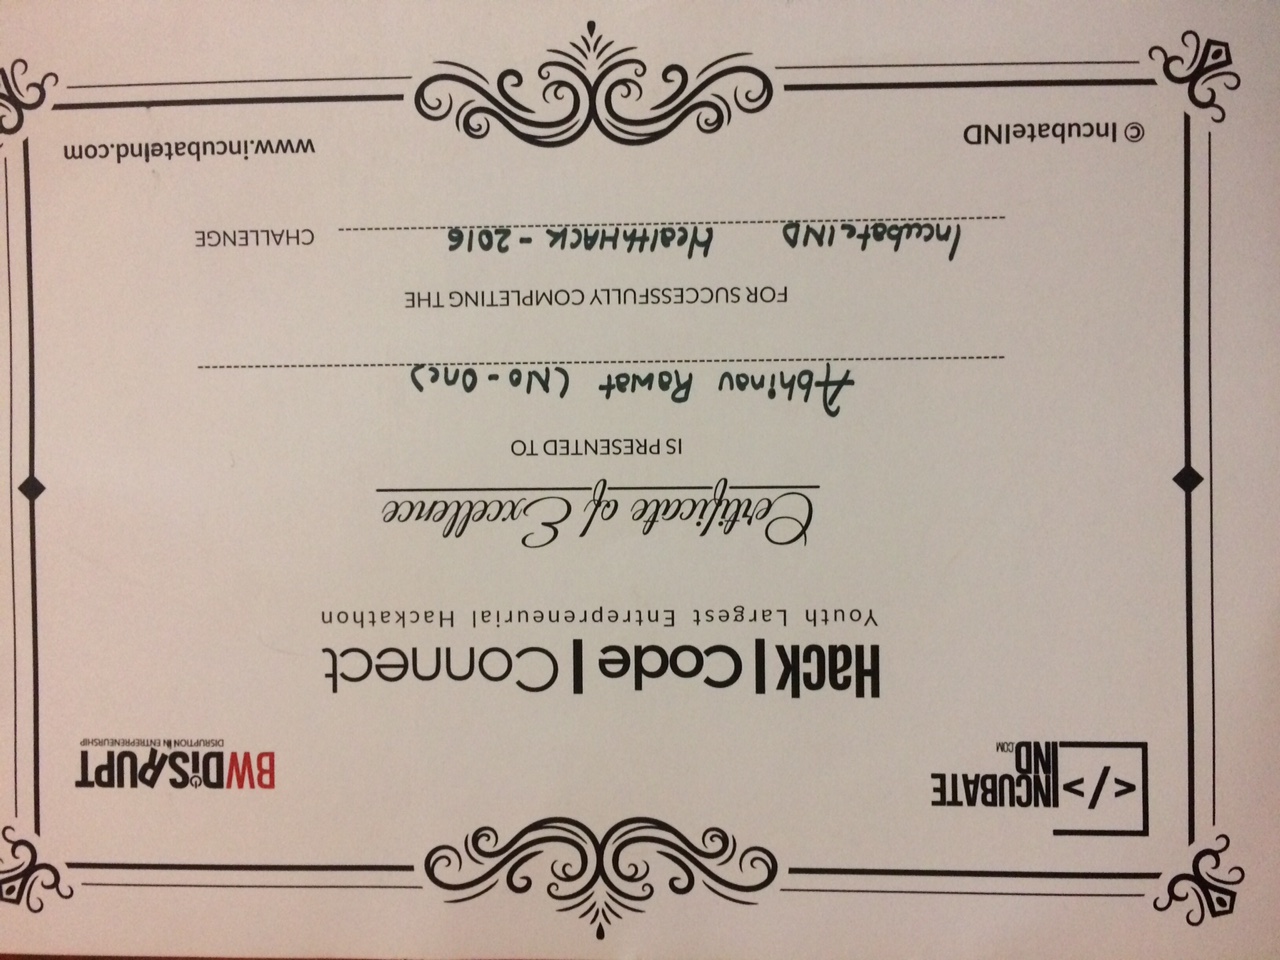 </>INCUBATE
IND.COM
BWDISRUPT
DISRUPTION IN ENTREPRENEURSHIP
Hack|Code|Connect
Youth Largest Entrepreneurial Hackathon
Certificate of Excellence
IS PRESENTED TO
Abhinav Rawat (No-One)
FOR SUCCESSFULLY COMPLETING THE
IncubateIND HealthHACK - 2016 CHALLENGE
© IncubateIND
www.incubateInd.com